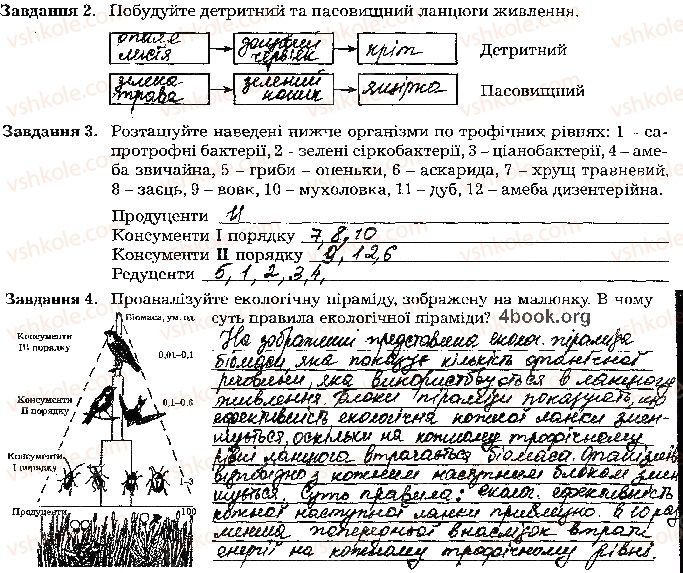 Завдання 2. Побудуйте детритний та пасовищний ланцюги живлення.
опале листя → дощовий черв'як → кріт Детритний
зелена трава → зелений коник → ящірка Пасовищний
Завдання 3. Розташуйте наведені нижче організми по трофічних рівнях: 1 - са-
протрофні бактерії, 2 - зелені сіркобактерії, 3 – ціанобактерії, 4 – аме-
ба звичайна, 5 – гриби – опеньки, 6 – аскарида, 7 – хрущ травневий,
8 – заєць, 9 – вовк, 10 – мухоловка, 11 – дуб, 12 – амеба дизентерійна.
Продуценти 11
Консументи І порядку 7, 8, 10
Консументи ІІ порядку 9, 12, 6
Редуценти 5, 1, 2, 3, 4,
Завдання 4. Проаналізуйте екологічну піраміду, зображену на малюнку. В чому
суть правила екологічної піраміди? 4book.org
Біомаса, ум. од.
Консументи ІІІ порядку 0,01–0,1
Консументи ІІ порядку 0,1–0,6
Консументи І порядку 1–3
Продуценти 100
На зображенні представлена еколог. піраміда
біомаси, яка показує кількість органічної
речовини, яка використовується в ланцюгах
живлення. Блоки піраміди показують, що
ефективність екологічна кожної ланки змен-
шується, оскільки на кожному трофічному
рівні ланцюга втрачається біомаса. Організмів
відповідно з кожним наступним блоком змен-
шується. Суть правила: еколог. ефективність
кожної наступної ланки приблизно в 10 раз
менша попередньої внаслідок втрати
енергії на кожному трофічному рівні.
vshkole.com